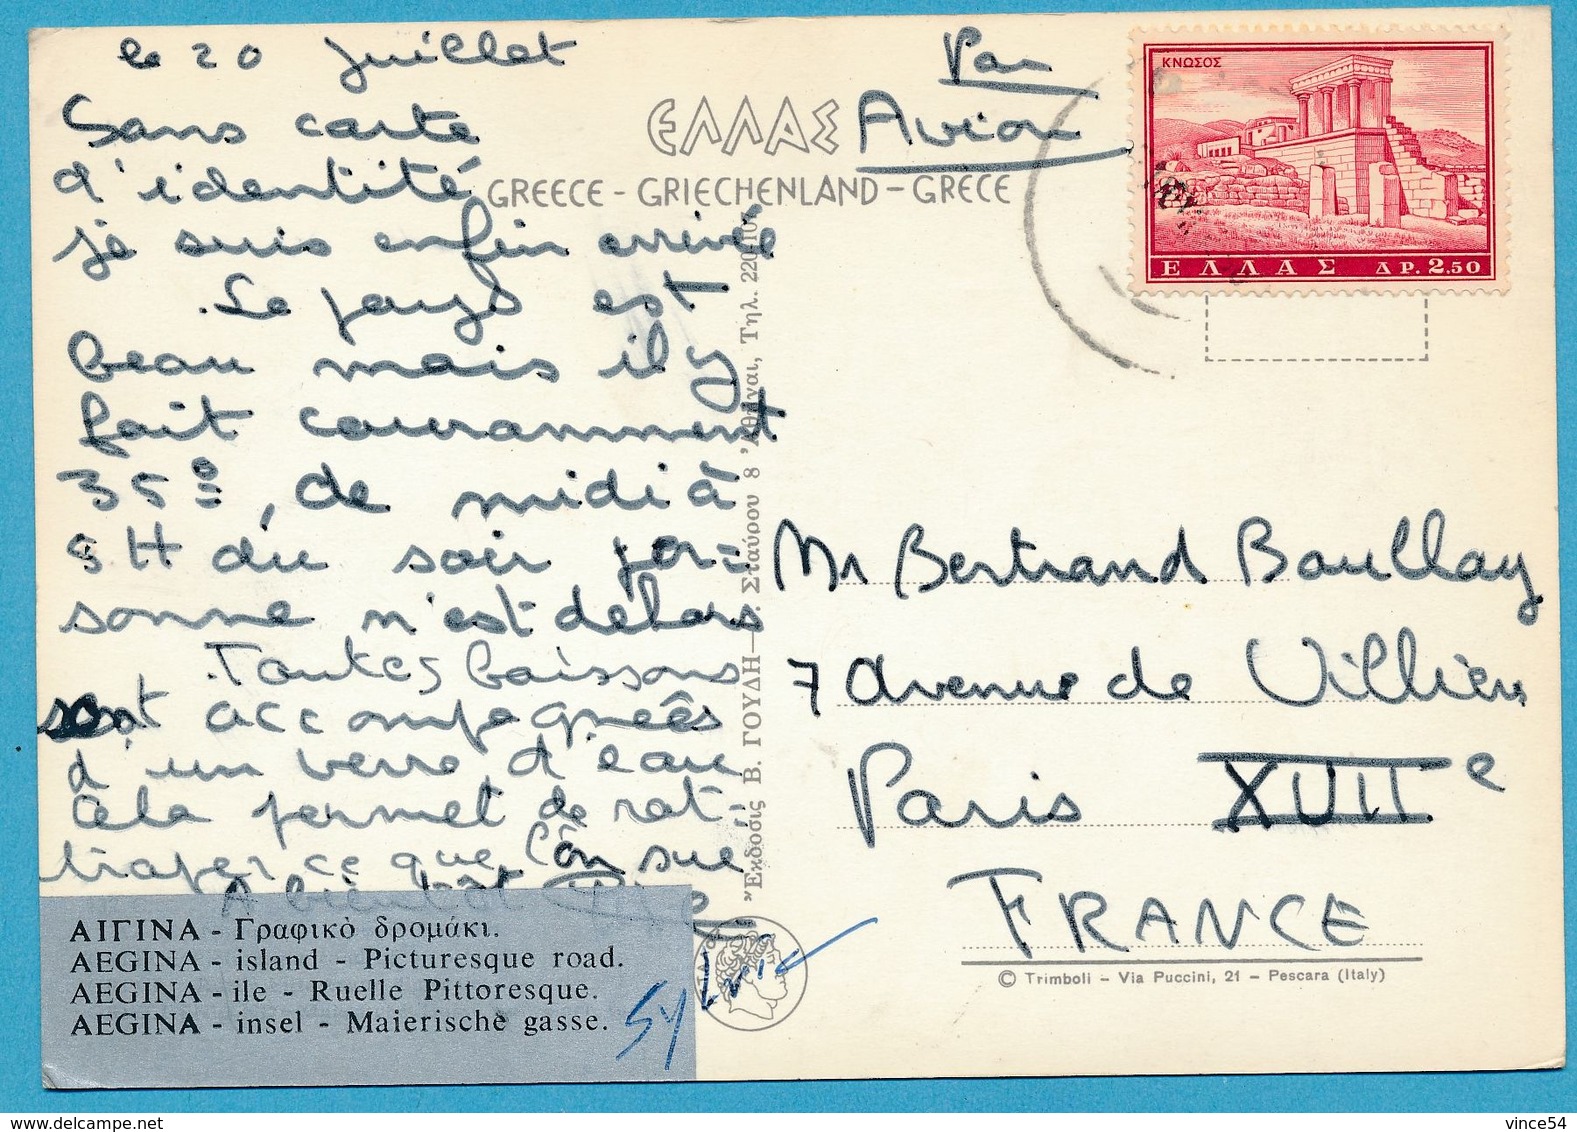 le 20 juillet
Sans carte
d'identité
je suis enfin arrivée
.Le pays est
beau mais il y
fait couramment
35°, de midi à
5H du soir per-
sonne n'est dehors
Toutes boissons
sont accompagnées
d'un verre d'eau
cela permet de rat
traper ce que l'on sue
A bientôt
Sylvie
ΑΙΓΙΝΑ - Γραφικὸ δρομάκι.
AEGINA - island - Picturesque road.
AEGINA - ile - Ruelle Pittoresque.
AEGINA - insel - Maierische gasse.
ΕΛΛΑΣ
GREECE - GRIECHENLAND - GRECE
Ἔκδοσις Β. ΓΟΥΔΗ — Σταύρου 8 Ἀθῆναι, Τηλ.
Par
Avion
ΚΝΩΣΟΣ
ΕΛΛΑΣ ΔΡ. 2.50
Mr Bertrand Boullay
7 avenue de Villiers
Paris XVIIe
FRANCE
© Trimboli - Via Puccini, 21 - Pescara (Italy)
vince54